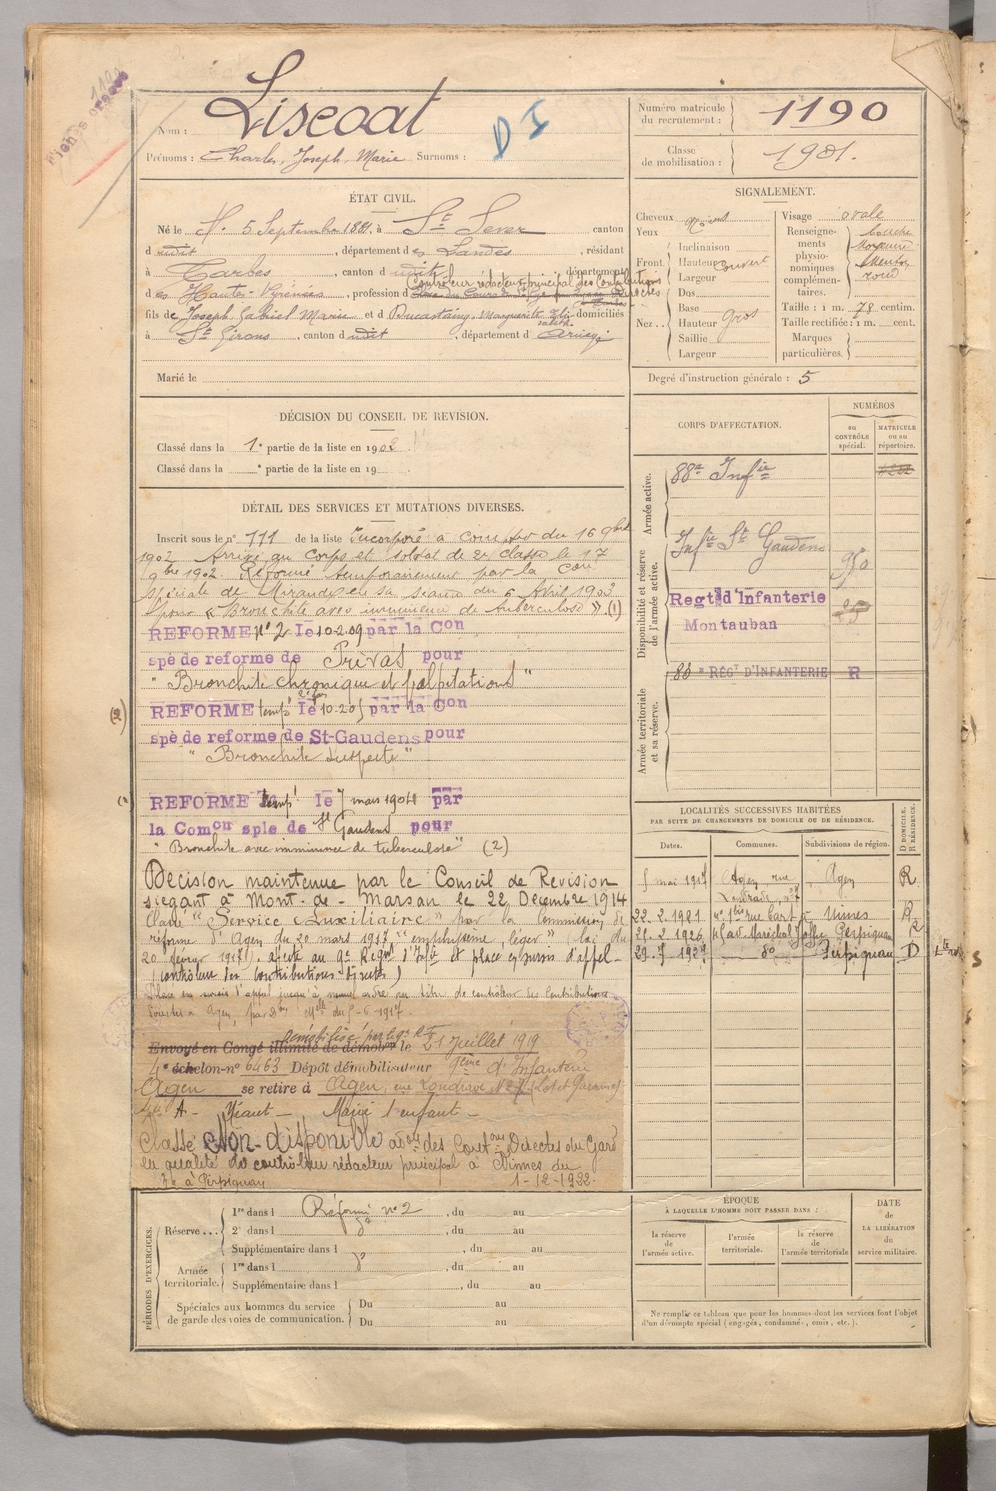 Nom : Liscoat
Prénoms : Charles, Joseph, Marie Surnoms :
D I
Numéro matricule du recrutement : 1190
Classe de mobilisation : 1901.
ÉTAT CIVIL.
Né le 5 Septembre 1881, à St Sever canton
dudit, département des Landes, résidant
à Tarbes, canton dudit, département
Contrôleur rédacteur principal des Contributions
des Hautes-Pyrénées, profession d directes
fils de Joseph Gabriel Marie et d Ducastaing, Marguerite domiciliés
à St Girons, canton dudit, département d Ariège
Marié le
SIGNALEMENT.
Cheveux
Yeux
Front. Inclinaison
Hauteur couvert
Largeur
Nez .. Dos
Base
Hauteur gros
Saillie
Largeur
Visage ovale
Renseignements physionomiques complémentaires. bouche moyenne menton rond
Taille : 1 m. 78 centim.
Taille rectifiée : 1 m. cent.
Marques particulières.
Degré d'instruction générale : 5
DÉCISION DU CONSEIL DE REVISION.
Classé dans la 1e partie de la liste en 1902
Classé dans la e partie de la liste en 19
DÉTAIL DES SERVICES ET MUTATIONS DIVERSES.
Inscrit sous le n° 111 de la liste Incorporé à compter du 16 9bre
1902 Arrivé au corps et soldat de 2e classe le 17
9bre 1902. Réformé temporairement par la Con
spéciale de Mirande en sa séance du 6 Avril 1903
pour « Bronchite avec imminence de tuberculose ». (1)
REFORME N° 2 le 10-2-09 par la Con
spè de reforme de Privas pour
" Bronchite chronique et palpitations "
REFORME tempt le 10-2-05 par la Con
spè de reforme de St-Gaudens pour
" Bronchite suspecte "
REFORME tempt le 7 mars 1904 par
la Comon sple de St Gaudens pour
" Bronchite avec imminence de tuberculose " (2)
Décision maintenue par le Conseil de Revision
siégant à Mont-de-Marsan le 22 Décembre 1914
Classé " Service Auxiliaire " par la Commission de
réforme d'Agen du 20 mars 1917 "emphysème, léger" (loi du
20 février 1917). Affecté au 9e Regnt d'Infie et placé en sursis d'appel
(contrôleur des contributions directes)
Placé en sursis d'appel jusqu'à nouvel ordre au titre de contrôleur des Contributions
Directes à Agen, par Don Mlle du 5-6-1917.
Démobilisé par
Envoyé en Congé illimité de démobon le 21 Juillet 1919
4e échelon-n° 6463 Dépôt démobilisateur 9ème d'Infanterie
Agen se retire à Agen, rue Londrade N° 7 (Lot et Garonne)
A - Néant - Marié 1 enfant -
Classé Non-disponible des Contons Directes du Gard
en qualité de contrôleur rédacteur principal à Nîmes du
à Perpignan 1-12-1932
CORPS D'AFFECTATION.
NUMÉROS
AU CONTRÔLE spécial.
MATRICULE ou au répertoire.
Armée active.
88e Infie
Disponibilité et réserve de l'armée active.
Infie St Gaudens 950
Regt d'Infanterie
Montauban
Armée territoriale et sa réserve.
88e RÉGt D'INFANTERIE R
LOCALITÉS SUCCESSIVES HABITÉES
PAR SUITE DE CHANGEMENTS DE DOMICILE OU DE RÉSIDENCE.
Dates. Communes. Subdivisions de région. D DOMICILE. R RÉSIDENCE.
5 mai 1917 Agen, rue Londrade, n°7 Agen R
22.2.1921 rue Bart à Nîmes R
21.2.1926 av. Maréchal Joffre Perpignan R
29.7.1927 d° Perpignan D
PÉRIODES D'EXERCICES.
Réserve ... 1re dans l Réformé n° 2, du au
2e dans l d°, du au
Supplémentaire dans l , du au
Armée territoriale. 1re dans l d°, du au
Supplémentaire dans l , du au
Spéciales aux hommes du service de garde des voies de communication. Du au
Du au
ÉPOQUE
À LAQUELLE L'HOMME DOIT PASSER DANS :
la réserve de l'armée active.
l'armée territoriale.
la réserve de l'armée territoriale
DATE de LA LIBÉRATION du service militaire.
Ne remplir ce tableau que pour les hommes dont les services font l'objet
d'un décompte spécial (engagés, condamnés, omis, etc.).